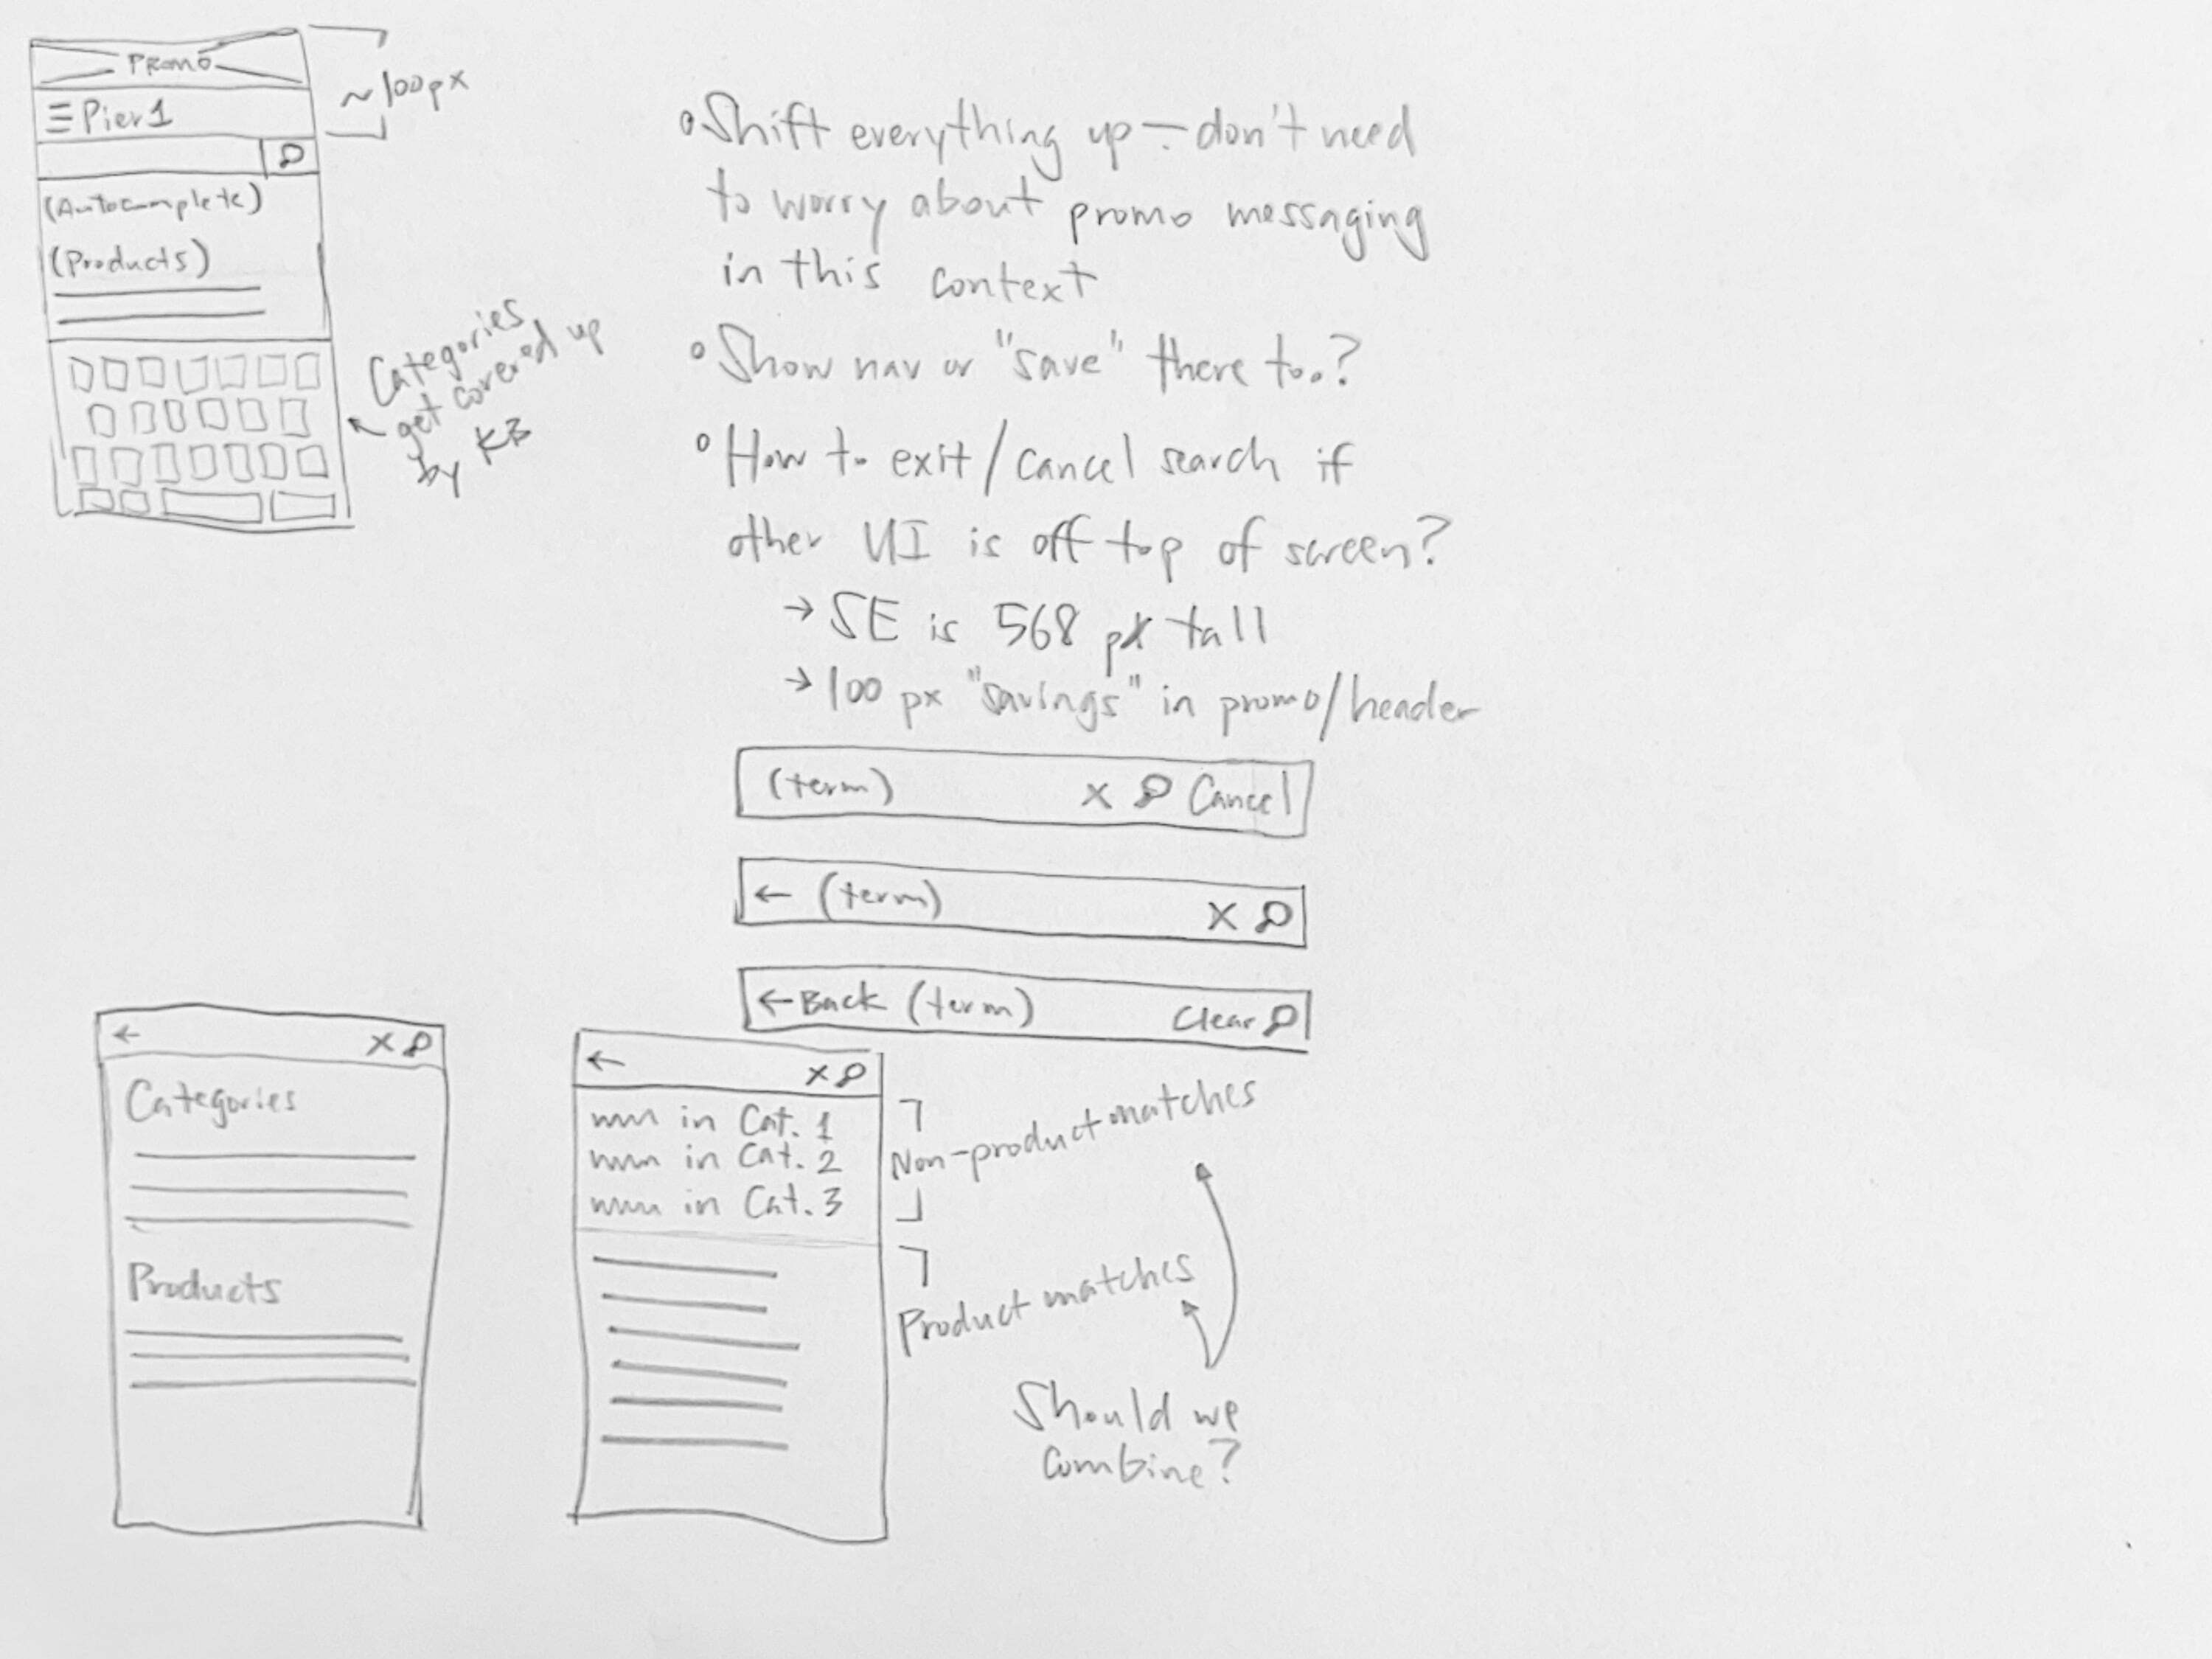 PROMO
~100px
Pier 1
(Autocomplete)
(Products)
Categories
get covered up
by KB
Shift everything up — don't need
to worry about promo messaging
in this context
Show nav or "save" there too?
How to exit/cancel search if
other UI is off top of screen?
→ SE is 568 px tall
→ 100 px "savings" in promo/header
(term) X Cancel
← (term) X
← Back (term) Clear
← X
Categories
Products
← X
in Cat. 1
in Cat. 2
in Cat. 3
Non-product matches
Product matches
Should we
combine?